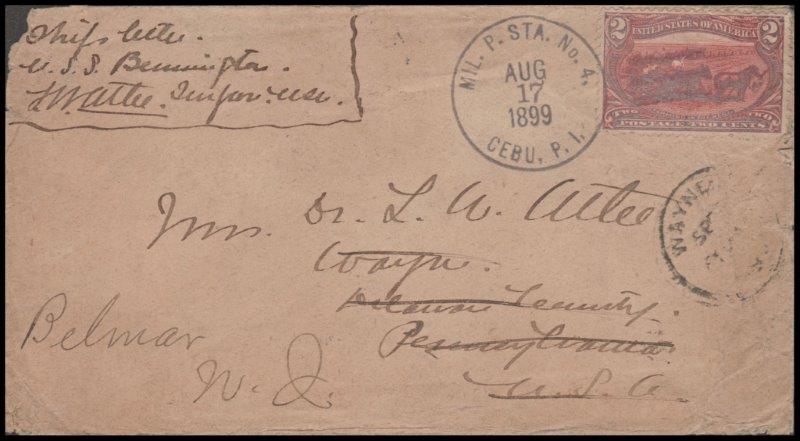 Ship's letter.
U.S.S. Bennington.
W. Atlee, Surgeon. USN.
MIL. P. STA. No. 4,
AUG
17
1899
CEBU, P. I.
2 UNITED STATES OF AMERICA 2
TWO TWO
POSTAGE TWO CENTS
WAYNE
Mrs. Dr. L. W. Atlee
Wayne.
Delaware County.
Pennsylvania
U. S. A.
Belmar
N. J.